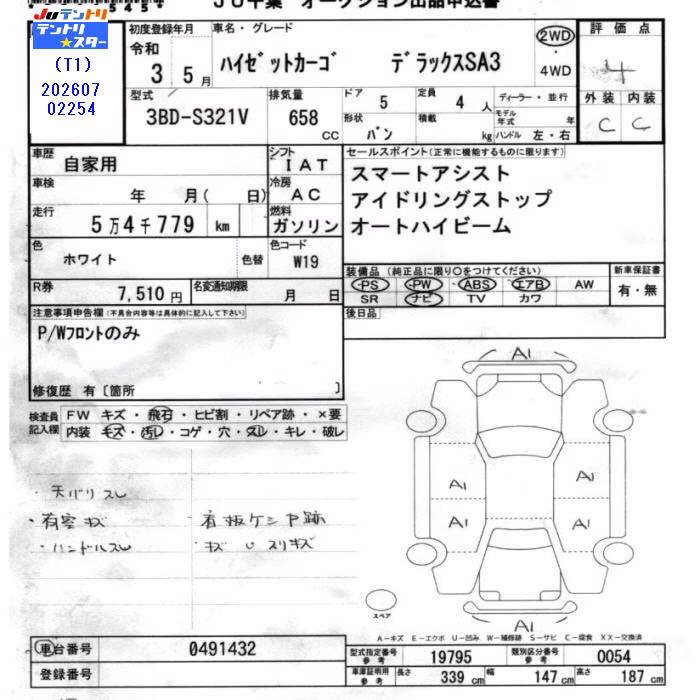 JU千葉 オークション出品申込書
JUテントリ
テントリ★スター
(T1)
202607
02254
初度登録年月
令和
3 5月
車名・グレード
ハイゼットカーゴ デラックスSA3
2WD
・
4WD
評価点
4
外装 内装
C C
型式
3BD-S321V
排気量
658
CC
ドア
5
定員
4 人
ディーラー・並行
モデル年式 年
形状
バン
積載
kg
ハンドル 左・右
車歴
自家用
シフト
IAT
車検
年 月( 日)
冷房
AC
走行
5万4千779 km
燃料
ガソリン
色
ホワイト
色替
色コード
W19
R券
7,510円
名変通知期限
月 日
セールスポイント(正常に機能するものに限ります)
スマートアシスト
アイドリングストップ
オートハイビーム
装備品(純正品に限り○をつけてください)
PS PW ABS エアB AW
SR ナビ TV カワ
新車保証書
有・無
後日品
注意事項申告欄(不具合内容等は具体的に記入して下さい)
P/Wフロントのみ
修復歴 有〔箇所 〕
検査員記入欄
FW キズ・飛石・ヒビ割・リペア跡・×要
内装 キズ・汚レ・コゲ・穴・スレ・キレ・破レ
・天バリスレ
・荷室キズ
・ハンドルスレ
・看板ケシP跡
キズUスリキズ
A1
A1
A1
A1
A1
A1
スペア
A-キズ E-エクボ U-凹み W-補修跡 S-サビ C-腐食 XX-交換済
車台番号
0491432
登録番号
型式指定番号
参考
19795
類別区分番号
参考
0054
車庫証明用
参考
長さ
339 cm
幅
147 cm
高さ
187 cm